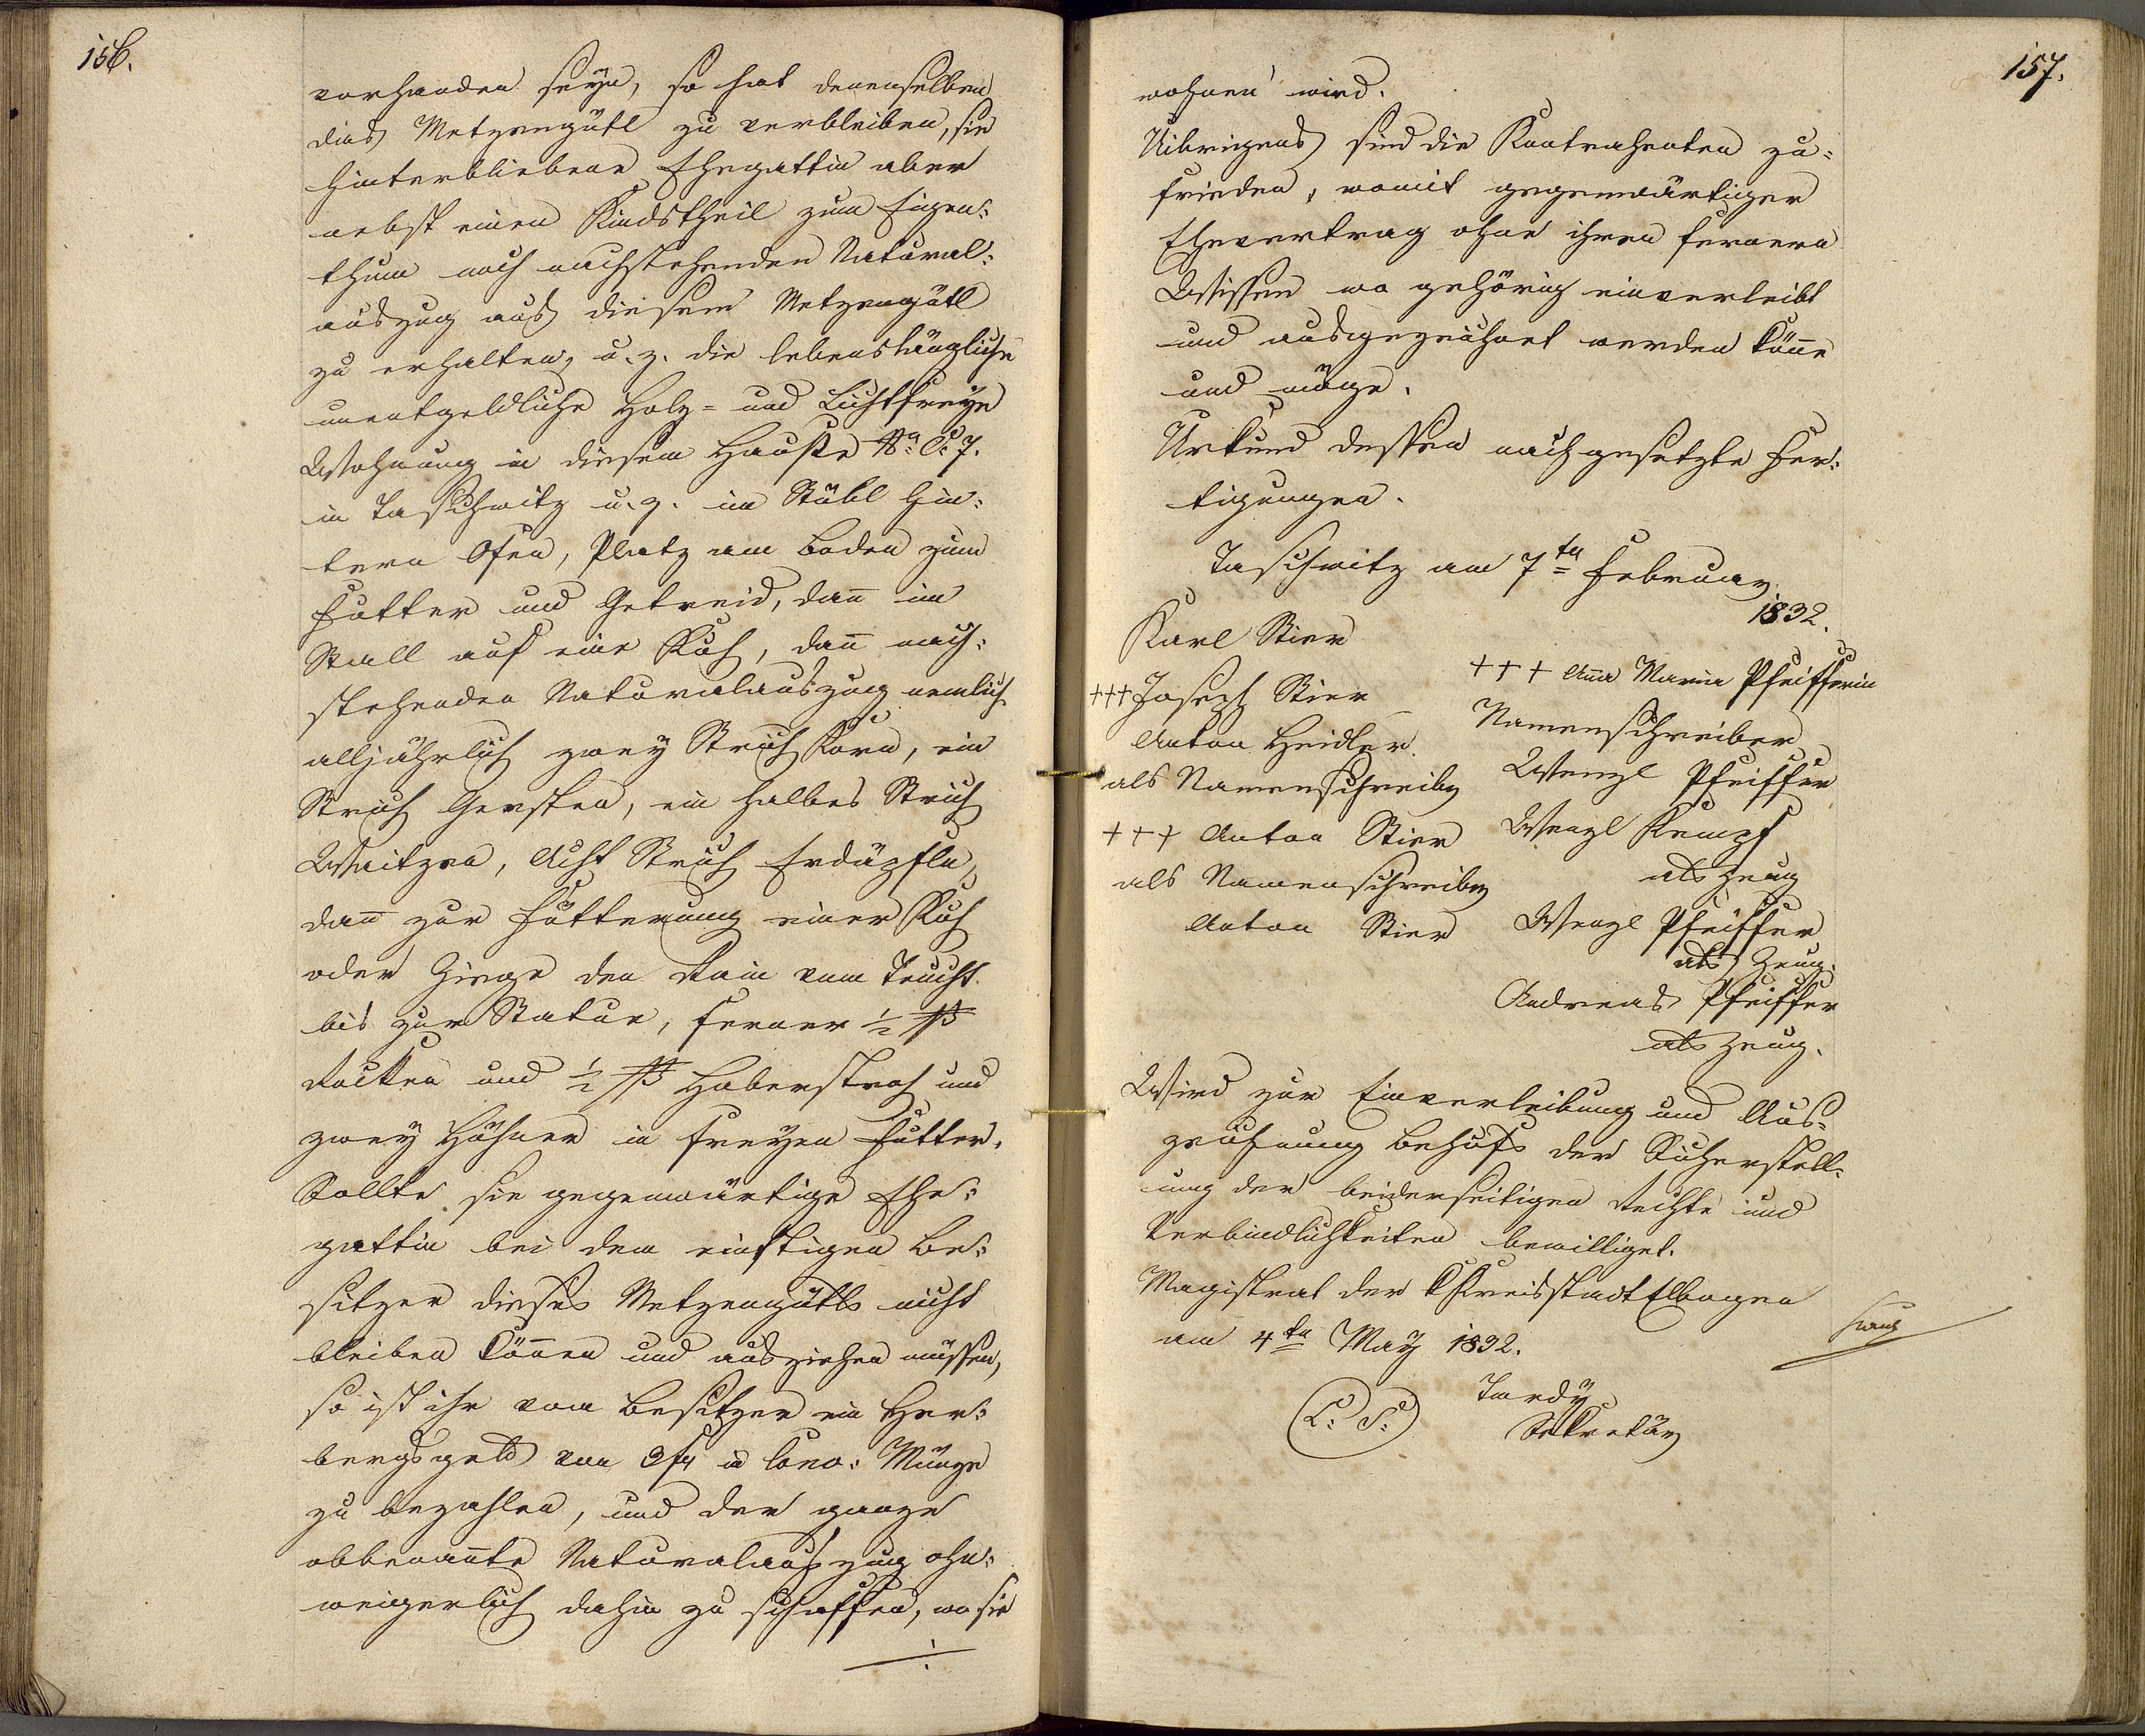 156.
vorhanden seyn, so hat denenselben
dies Metzengütl zu verbleiben, sie
hinterbliebene Ehegattin aber
nebst einen Kindstheil zum Eigen:
thum noch nachstehenden Natural:
auszug aus diesem Metzengütl
zu erhalten, u. z. die lebenslängliche
unentgeldliche Holz= und Lichtfreye
Wohnung in diesem Hauße No: C: 7.
in Taschwitz u. z. im Stübl hin:
tern Ofen, Platz am Boden zum
Futter und Getreid, dan̄ im
Stall auf eine Kuh, dan̄ nach:
stehenden Naturalauszug nemlich
alljährlich zwey Strich Korn, ein
Strich Gersten, ein halbes Strich
Waitzen, Acht Strich Erdäpfln,
dan̄ zur Fütterung einer Kuh
oder Ziege den Rain vom Teucht
bis zur Statue, ferner ½ ß
Rocken und ½ ß Haberstroh und
zwey Hühner in freyen Futter.
Sollte sie gegenwärtige Ehe:
gattin bei dem einstigen Be:
sitzer dieses Metzengütls nicht
bleiben kön̄en und ausziehen müssen,
so ist ihr vom Besitzer ein Her:
bergsgeld von 3 fr in Conv: Münze
zu bezahlen, und der ganze
obbenan̄te Naturalauszug ohn:
weigerlich dahin zu schaffen, wo sie
157.
wohnen wird.
Uibrigens sind die Kontrahenten zu=
frieden, womit gegenwärtiger
Ehevertrag ohne ihren fernern
Wissen wo gehörig einverleibt
und ausgezeichnet werden kön̄e
und möge.
Urkund dessen nachgesetzte Fer:
tigungen.
Taschwitz am 7ten February
1832.
Karl Stier
+++ Joseph Stier
Anton Heidler
als Namenschreiber
+++ Anton Stier
als Namenschreiber
Anton Stier
+++ An̄a Maria Pfeifferin
Namenschreiber
Wenzl Pfeiffer
Wenzl Kempf
als Zeug
Wenzl Pfeiffer
als Zeug.
Andreas Pfeiffer
als Zeug.
Wird zur Einverleibung und Aus:
zeichnung behufs der Sicherstell:
ung der beiderseitigen Rechte und
Verbindlichkeiten bewilliget.
Magistrat der KKreisstadt Elbogen
am 4ten May 1832.
L: S:
Tardy
Sekretär